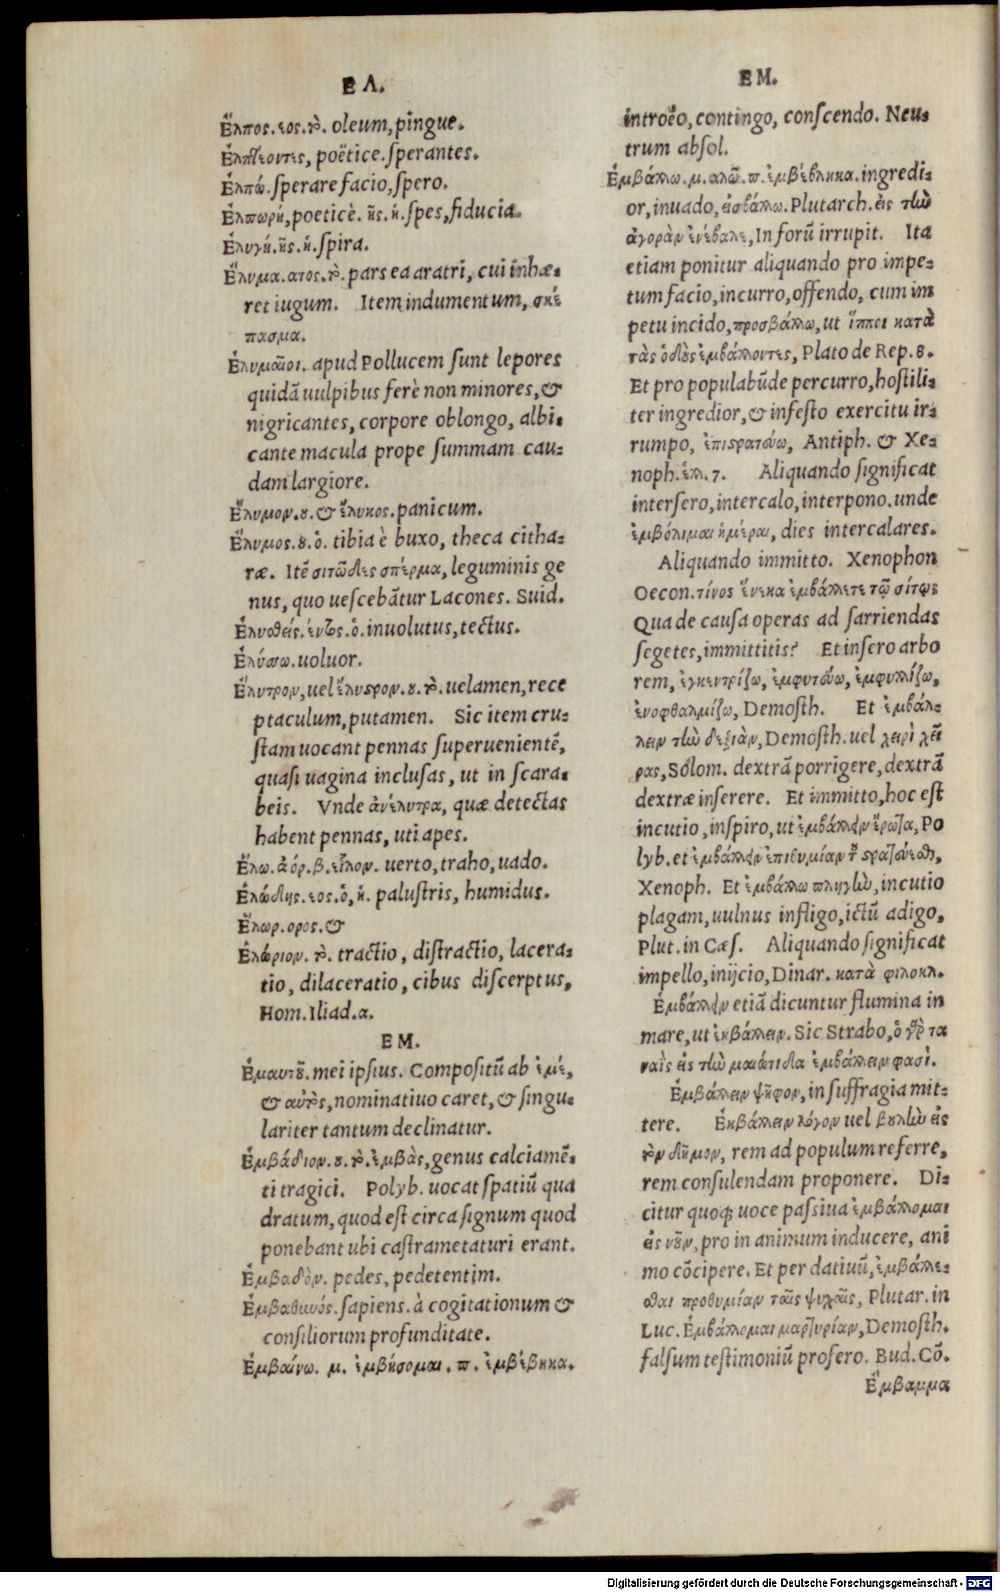 ΕΛ.
Ἔλπος.εος.τὸ. oleum, pingue.
Ἐλπίζοντες, poëtice. sperantes.
Ἐλπώ. sperare facio, spero.
Ἐλπωρή, poeticè. ῆς. ἡ. spes, fiducia.
Ἐλυγή.ῆς.ἡ. spira.
Ἔλυμα.ατος.τὸ. pars ea aratri, cui inhæ-
ret iugum. Item indumentum, σκέ
πασμα.
Ἐλυμαῖοι. apud Pollucem sunt lepores
quidã uulpibus ferè non minores, &
nigricantes, corpore oblongo, albi-
cante macula prope summam cau-
dam largiore.
Ἔλυμον.ου.& ἔλυκος. panicum.
Ἔλυμος.ου.ὁ. tibia è buxo, theca citha-
ræ. Itẽ σιτῶδες σπέρμα, leguminis ge
nus, quo uescebãtur Lacones. Suid.
Ἐλυσθείς.έντος.ὁ. inuolutus, tectus.
Ἐλύσσω. uoluor.
Ἔλυτρον, uel ἔλυστρον.ου.τὸ. uelamen, rece
ptaculum, putamen. Sic item cru-
stam uocant pennas superuenientẽ,
quasi uagina inclusas, ut in scara-
beis. Vnde ἀνέλυτρα, quæ detectas
habent pennas, uti apes.
Ἕλω.ἀόρ.β.εἷλον. uerto, traho, uado.
Ἑλώδης.εος.ὁ,ἡ. palustris, humidus.
Ἕλωρ.ορος.&
Ἑλώριον.τὸ. tractio, distractio, lacera-
tio, dilaceratio, cibus discerptus,
Hom. Iliad. α.
ΕΜ.
Ἐμαυτοῦ. mei ipsius. Compositũ ab ἐμέ,
& αὐτός, nominatiuo caret, & singu-
lariter tantum declinatur.
Ἐμβάδιον.ου.τὸ. ἐμβὰς, genus calciamẽ-
ti tragici. Polyb. uocat spatiũ qua
dratum, quod est circa signum quod
ponebant ubi castrametaturi erant.
Ἐμβαδόν. pedes, pedetentim.
Ἐμβαθυνός. sapiens. à cogitationum &
consiliorum profunditate.
Ἐμβαίνω. μ. ἐμβήσομαι. π. ἐμβέβηκα.
ΕΜ.
introëo, contingo, conscendo. Neu-
trum absol.
Ἐμβάλλω.μ.αλῶ.π.ἐμβέβληκα. ingredi-
or, inuado, εἰσβάλλω. Plutarch. εἰς τὴν
ἀγορὰν ἐνέβαλε, In forũ irrupit. Ita
etiam ponitur aliquando pro impe-
tum facio, incurro, offendo, cum im
petu incido, προσβάλλω, ut ἵπποι κατὰ
τὰς ὁδοὺς ἐμβάλλοντες, Plato de Rep. 8.
Et pro populabũde percurro, hostili-
ter ingredior, & infesto exercitu ir-
rumpo, ἐπιστρατεύω, Antiph. & Xe-
noph. ἑλλ. 7. Aliquando significat
intersero, intercalo, interpono. unde
ἐμβόλιμαι ἡμέραι, dies intercalares.
Aliquando immitto. Xenophon
Oecon. τίνος ἕνεκα ἐμβάλλετε τῷ σίτῳς
Qua de causa operas ad sarriendas
segetes, immittitis? Et insero arbo
rem, ἐγκεντρίζω, ἐμφυτεύω, ἐμφυλλίζω,
ἐνοφθαλμίζω, Demosth. Et ἐμβάλ-
λειν τὴν δεξιὰν, Demosth. uel χειρὶ χεῖ
ρας, Solom. dextrã porrigere, dextrã
dextræ inserere. Et immitto, hoc est
incutio, inspiro, ut ἐμβάλλειν ἔρωτα, Po
lyb. et ἐμβάλλειν ἐπιθυμίαν τοῦ στρατεύεσθαι,
Xenoph. Et ἐμβάλλω πληγὴν, incutio
plagam, uulnus infligo, ictũ adigo,
Plut. in Cæs. Aliquando significat
impello, inijcio, Dinar. κατὰ φιλοκλ.
Ἐμβάλλειν etiã dicuntur flumina in
mare, ut ἐκβάλλειν. Sic Strabo, ὁ γὰρ τα
ναῒς εἰς τὴν μαιώτιδα ἐμβάλλειν φασί.
Ἐμβάλλειν ψῆφον, in suffragia mit-
tere. Ἐκβάλλειν λόγον uel βουλὴν εἰς
τὸν δῆμον, rem ad populum referre,
rem consulendam proponere. Di-
citur quoq; uoce passiua ἐμβάλλομαι
εἰς νοῦν, pro in animum inducere, ani
mo cõcipere. Et per datiuũ, ἐμβάλλε-
σθαι προθυμίαν ταῖς ψυχαῖς, Plutar. in
Luc. Ἐμβάλλομαι μαρτυρίαν, Demosth.
falsum testimoniũ profero. Bud. Cõ.
Ἔμβαμμα
Digitalisierung gefördert durch die Deutsche Forschungsgemeinschaft - DFG